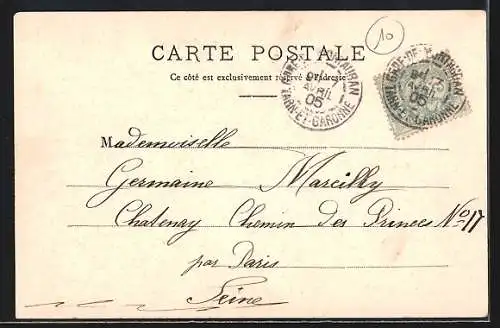 10
CARTE POSTALE
Ce côté est exclusivement réservé à l'adresse
GARE DE MONTAUBAN
AVRIL
05
TARN-ET-GARONNE
GARE-DE-MONTAUBAN
AVRIL
05
TARN-ET-GARONNE
Mademoiselle
Germaine Marcilly
Chatenay Chemin des Princes No 17
par Paris
Seine